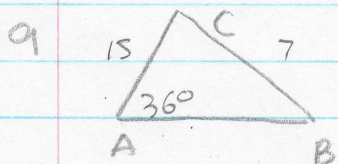 9
15
C
7
36°
A
B